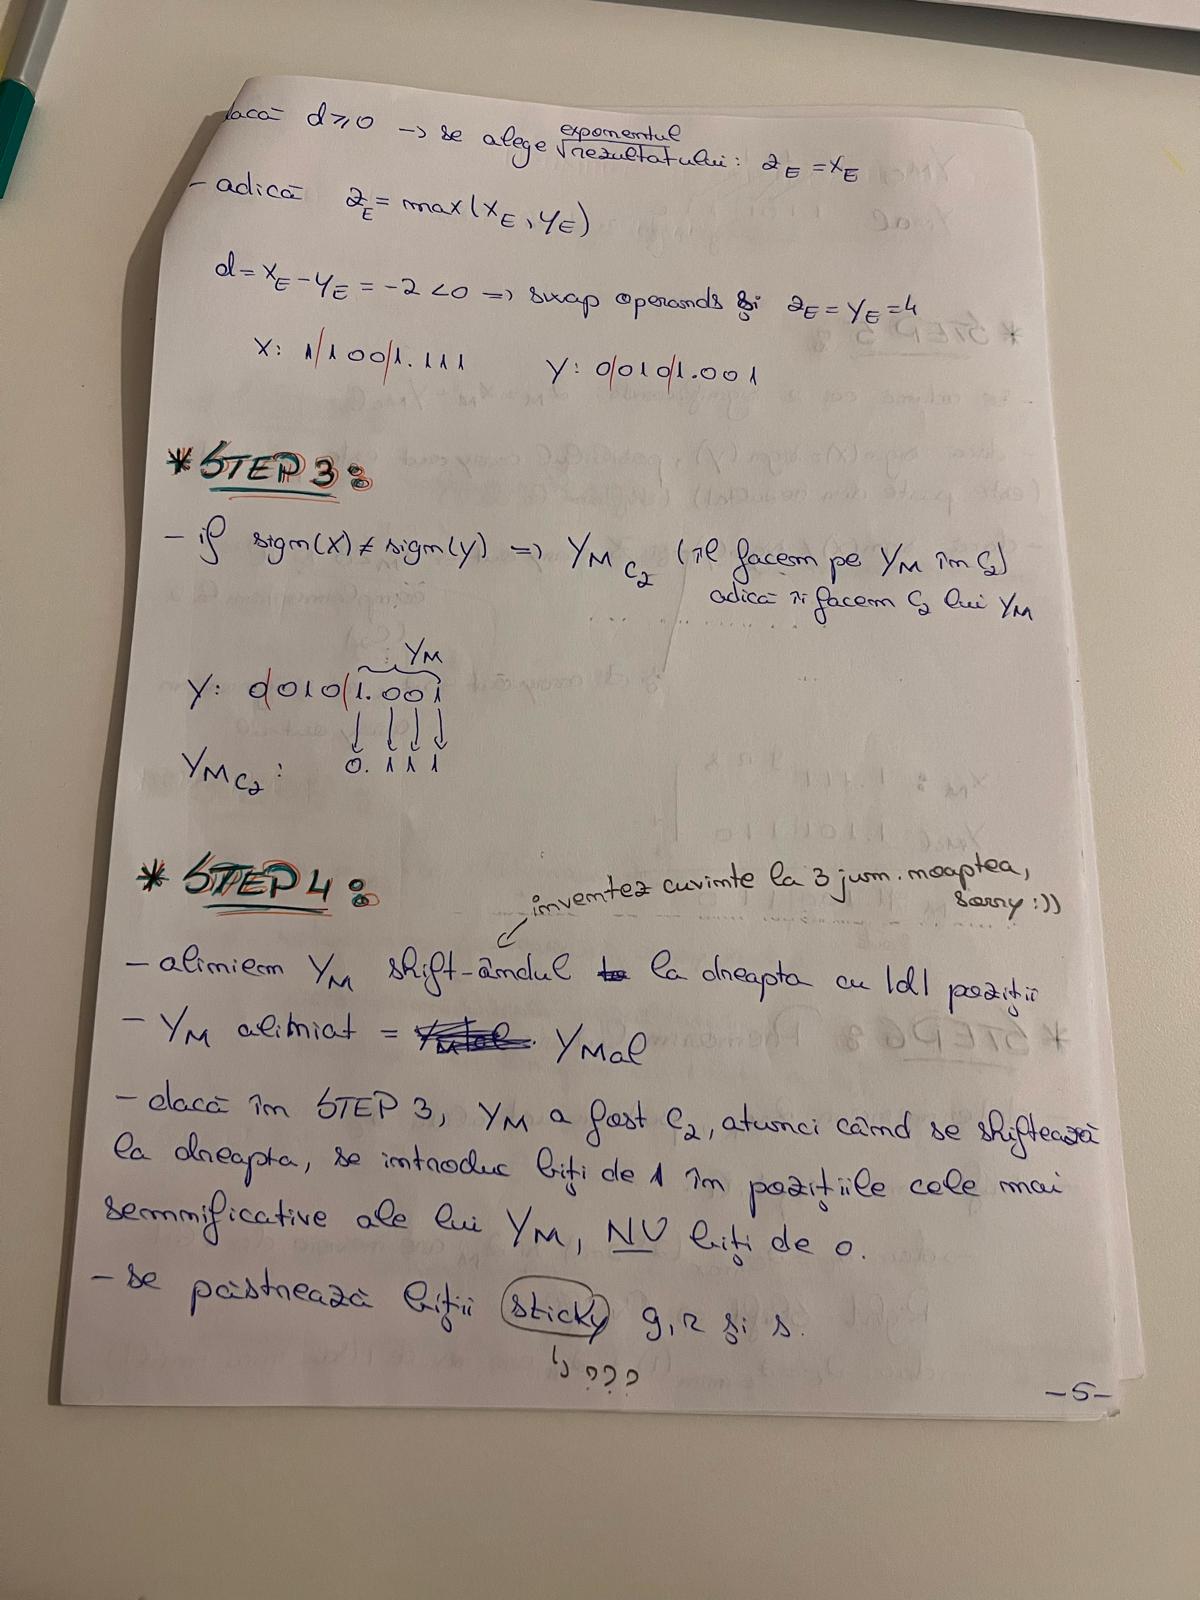 dacă d≥0 -> se alege exponentul
√rezultatului: z_E = x_E
- adică z_E = max(x_E, y_E)
d = x_E - y_E = -2 < 0 => swap operands și z_E = y_E = 4
X: 1/100/1.111 Y: 0/010/1.001
* STEP 3:
- if sign(X) ≠ sign(Y) => Y_M C2 (îl facem pe Y_M în C2)
adică îi facem C2 lui Y_M
Y_M
Y: 0/010/1.001
Y_M C2: 0.111
* STEP 4:
inventez cuvinte la 3 jum. noaptea,
sorry :))
- aliniem Y_M shift-ândul la dreapta cu |d| poziții
- Y_M aliniat = Y_Mal
- dacă în STEP 3, Y_M a fost C2, atunci când se shiftează
la dreapta, se introduc biți de 1 în pozițiile cele mai
semnificative ale lui Y_M, NU biți de 0.
- se păstrează biții sticky g, r și s.
↳ ???
-5-